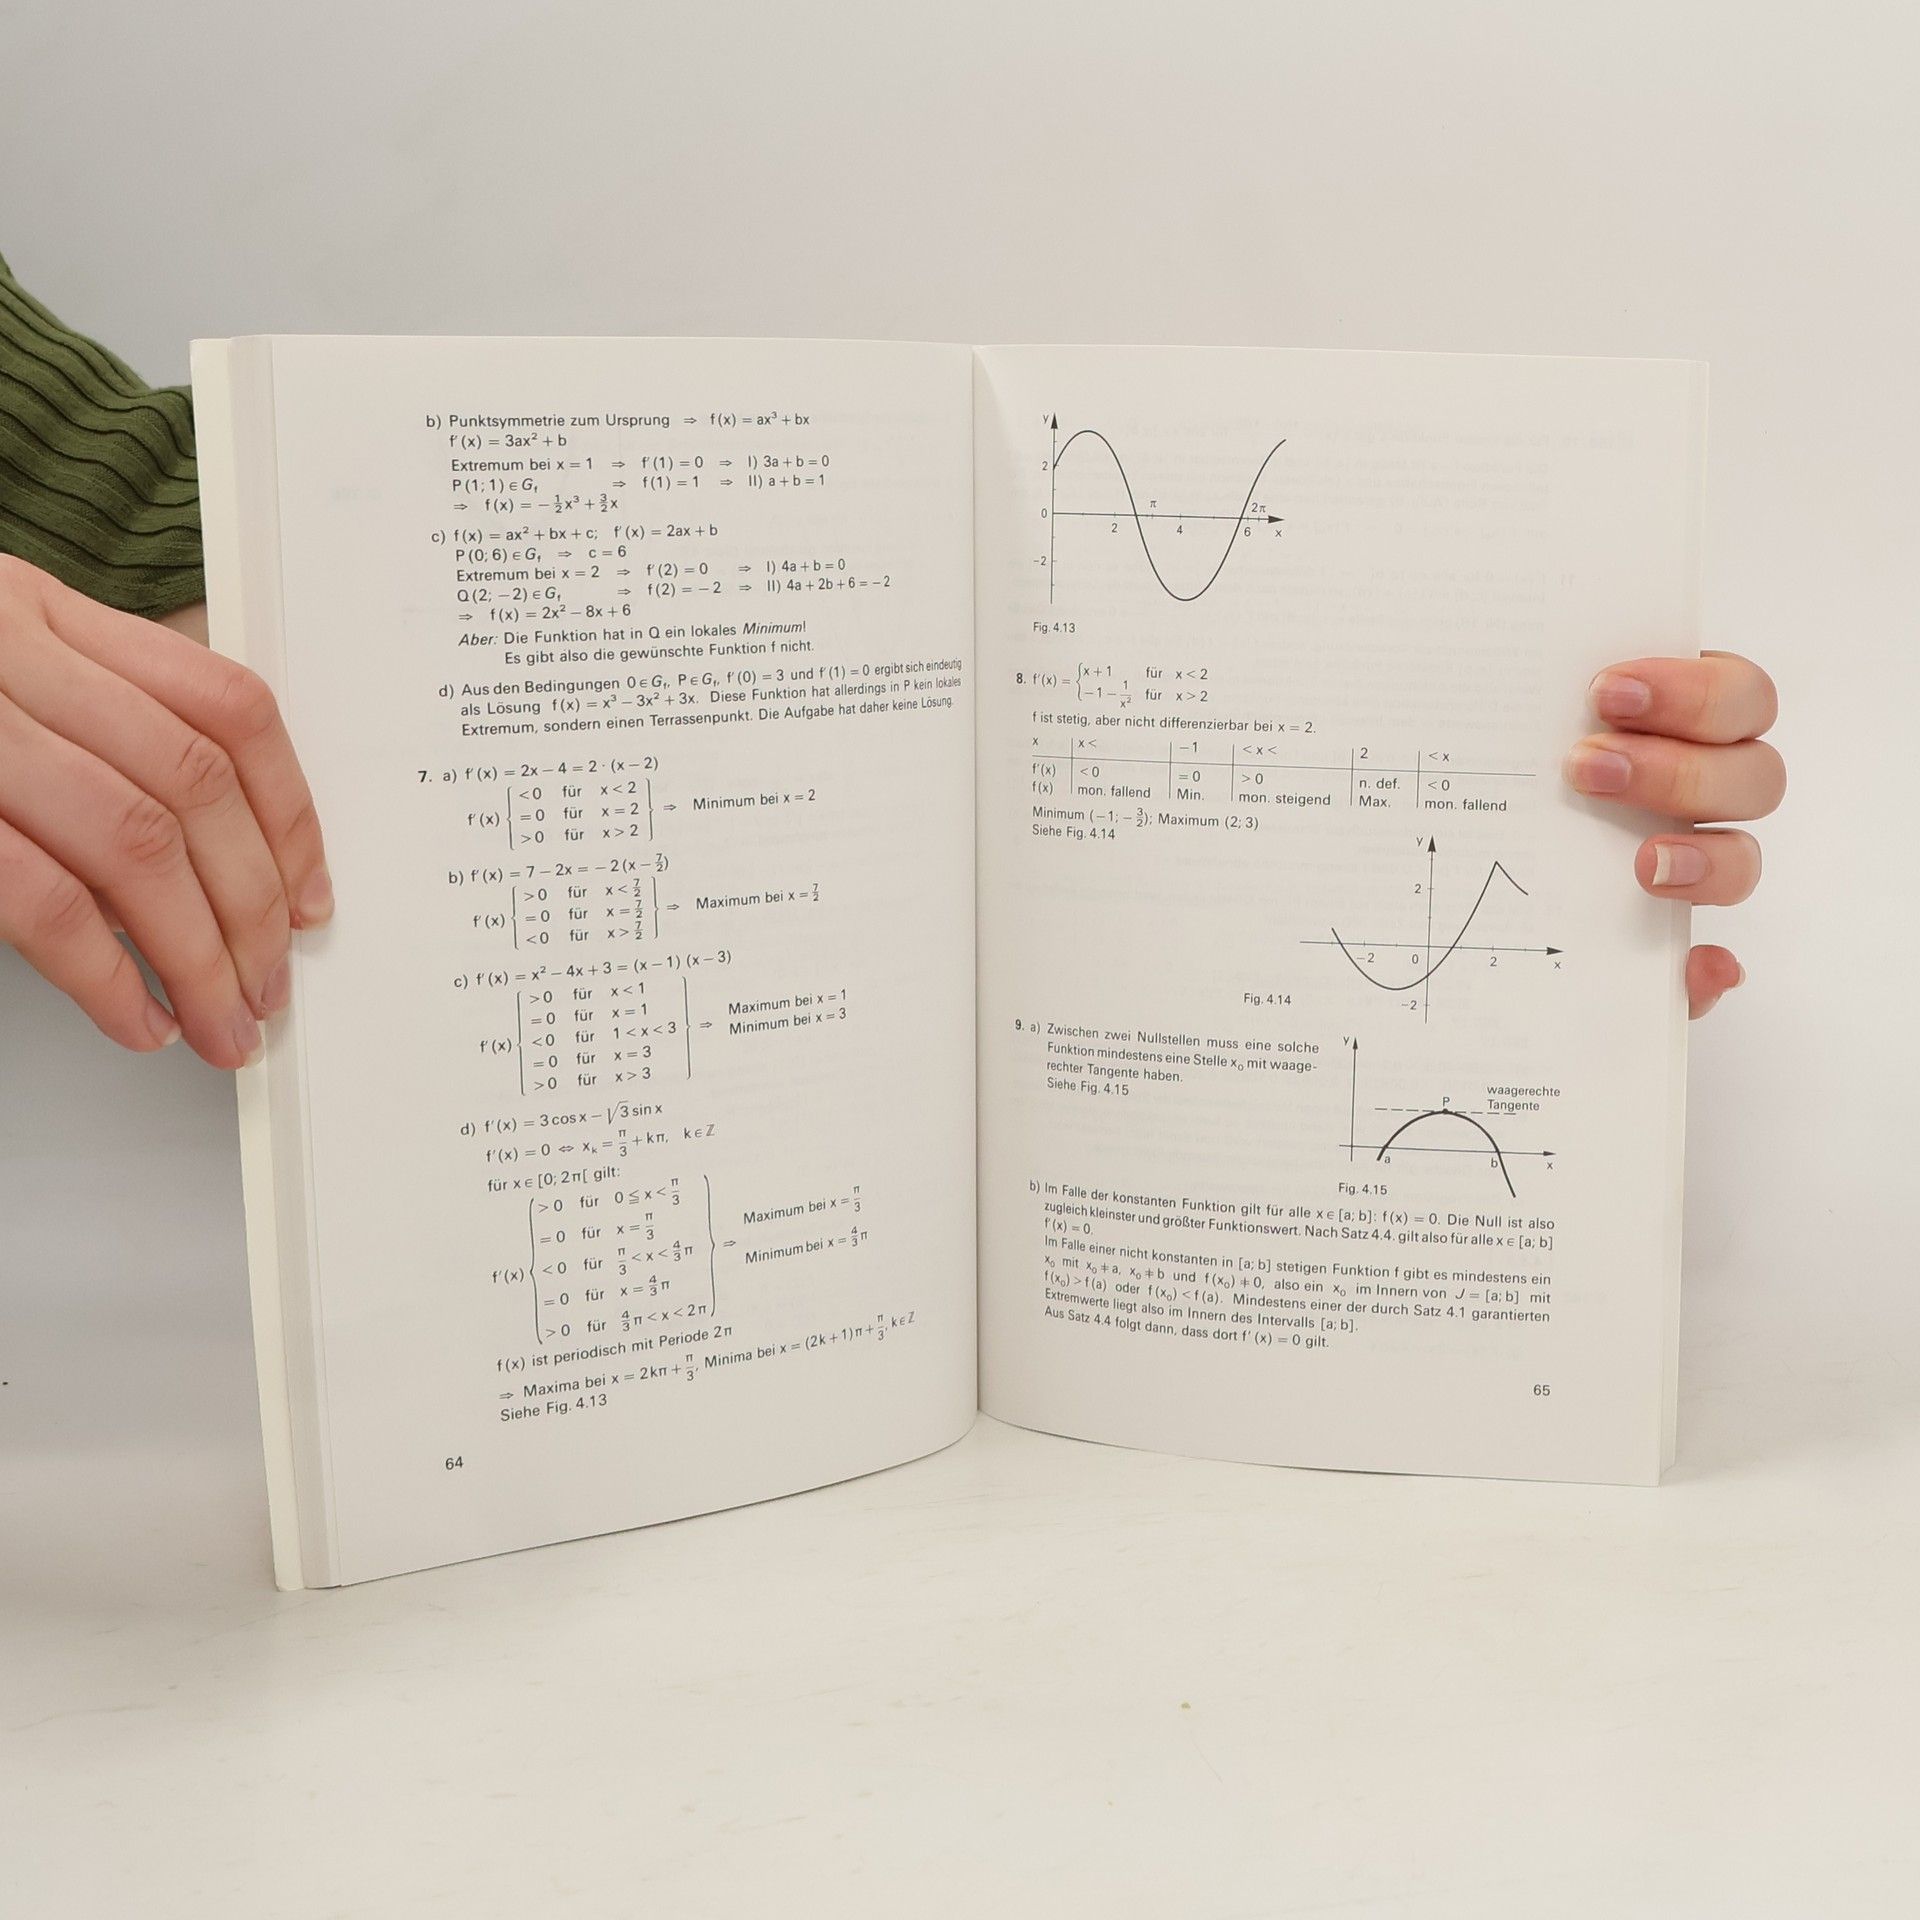 b) Punktsymmetrie zum Ursprung ⇒ f(x) = ax³ + bx
f'(x) = 3ax² + b
Extremum bei x = 1 ⇒ f'(1) = 0 ⇒ I) 3a + b = 0
P(1; 1) ∈ G_f ⇒ f(1) = 1 ⇒ II) a + b = 1
⇒ f(x) = −½x³ + 3/2x
c) f(x) = ax² + bx + c; f'(x) = 2ax + b
P(0; 6) ∈ G_f ⇒ c = 6
Extremum bei x = 2 ⇒ f'(2) = 0 ⇒ I) 4a + b = 0
Q(2; −2) ∈ G_f ⇒ f(2) = −2 ⇒ II) 4a + 2b + 6 = −2
⇒ f(x) = 2x² − 8x + 6
Aber: Die Funktion hat in Q ein lokales Minimum!
Es gibt also die gewünschte Funktion f nicht.
d) Aus den Bedingungen 0 ∈ G_f, P ∈ G_f, f'(0) = 3 und f'(1) = 0 ergibt sich eindeutig
als Lösung f(x) = x³ − 3x² + 3x. Diese Funktion hat allerdings in P kein lokales
Extremum, sondern einen Terrassenpunkt. Die Aufgabe hat daher keine Lösung.
7. a) f'(x) = 2x − 4 = 2 · (x − 2)
<0 für x < 2
f'(x) = 0 für x = 2 ⇒ Minimum bei x = 2
>0 für x > 2
b) f'(x) = 7 − 2x = −2(x − 7/2)
>0 für x < 7/2
f'(x) = 0 für x = 7/2 ⇒ Maximum bei x = 7/2
<0 für x > 7/2
c) f'(x) = x² − 4x + 3 = (x − 1)(x − 3)
>0 für x < 1
= 0 für x = 1 Maximum bei x = 1
f'(x) <0 für 1 < x < 3 ⇒ Minimum bei x = 3
= 0 für x = 3
>0 für x > 3
d) f'(x) = 3 cos x − √3 sin x
f'(x) = 0 ⇔ x_k = π/3 + kπ, k ∈ ℤ
für x ∈ [0; 2π[ gilt:
>0 für 0 ≦ x < π/3
= 0 für x = π/3 Maximum bei x = π/3
f'(x) <0 für π/3 < x < 4/3π ⇒ Minimum bei x = 4/3π
= 0 für x = 4/3π
>0 für 4/3π < x < 2π
f(x) ist periodisch mit Periode 2π
⇒ Maxima bei x = 2kπ + π/3, Minima bei x = (2k + 1)π + π/3, k ∈ ℤ
Siehe Fig. 4.13
64
y
2
0
−2
2
π
4
6
2π
x
Fig. 4.13
8. f'(x) = {x + 1 für x < 2
−1 − 1/x² für x > 2
f ist stetig, aber nicht differenzierbar bei x = 2.
x x < −1 < x < 2 < x
f'(x) <0 = 0 >0 n. def. <0
f(x) mon. fallend Min. mon. steigend Max. mon. fallend
Minimum (−1; −3/2); Maximum (2; 3)
Siehe Fig. 4.14
y
2
−2
0
2
x
−2
Fig. 4.14
9. a) Zwischen zwei Nullstellen muss eine solche
Funktion mindestens eine Stelle x₀ mit waage-
rechter Tangente haben.
Siehe Fig. 4.15
y
waagerechte
Tangente
P
a
b
x
Fig. 4.15
b) Im Falle der konstanten Funktion gilt für alle x ∈ [a; b]: f(x) = 0. Die Null ist also
zugleich kleinster und größter Funktionswert. Nach Satz 4.4. gilt also für alle x ∈ [a; b]
f'(x) = 0.
Im Falle einer nicht konstanten in [a; b] stetigen Funktion f gibt es mindestens ein
x₀ mit x₀ ≠ a, x₀ ≠ b und f(x₀) ≠ 0, also ein x₀ im Innern von J = [a; b] mit
f(x₀) > f(a) oder f(x₀) < f(a). Mindestens einer der durch Satz 4.1 garantierten
Extremwerte liegt also im Innern des Intervalls [a; b].
Aus Satz 4.4 folgt dann, dass dort f'(x) = 0 gilt.
65